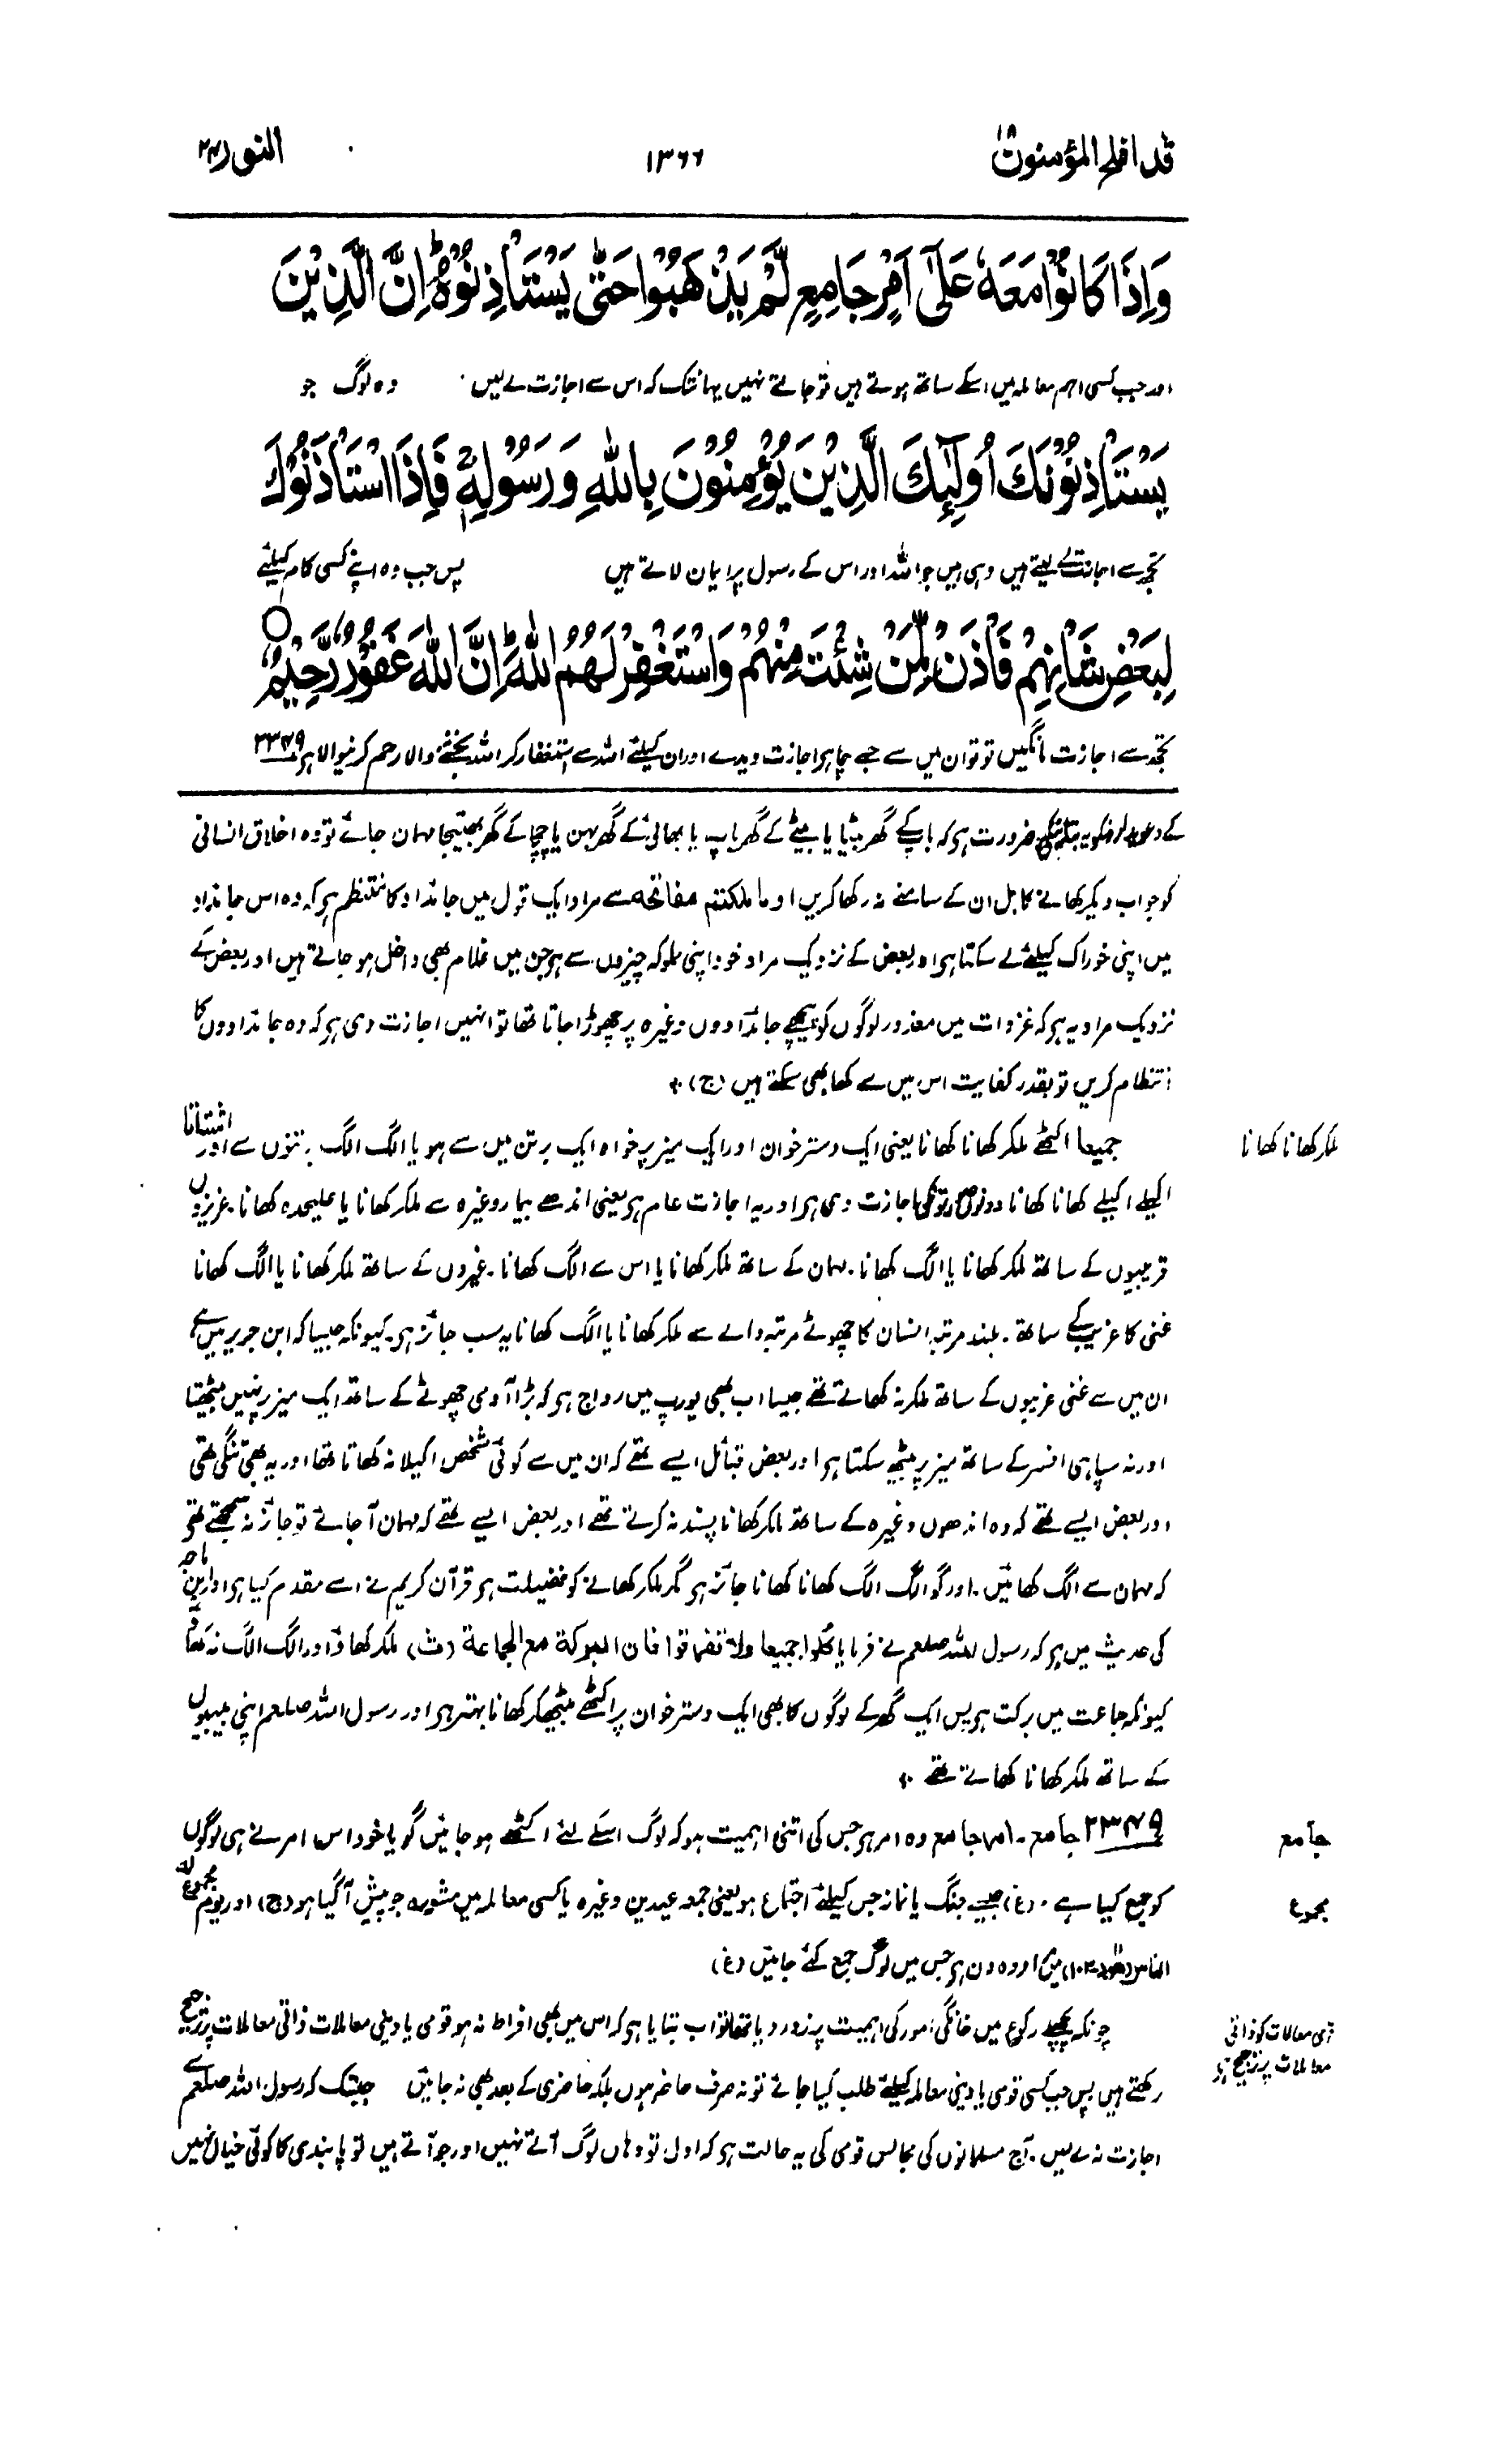 قد افلح المؤمنون ۱۸
۱۳۶۶
النور ۲۴
وَاِذَا كَانُوْا مَعَهٗ عَلٰٓى اَمْرٍ جَامِعٍ لَّمْ يَذْهَبُوْا حَتّٰى يَسْتَاْذِنُوْهُ ؕ اِنَّ الَّذِيْنَ
اور جب کسی اہم معاملہ میں اسکے ساتھ ہوتے ہیں تو جاتے نہیں یہانتک کہ اس سے اجازت لے لیں وہ لوگ جو
يَسْتَاْذِنُوْنَكَ اُولٰٓئِكَ الَّذِيْنَ يُؤْمِنُوْنَ بِاللّٰهِ وَرَسُوْلِهٖ ۚ فَاِذَا اسْتَاْذَنُوْكَ
تجھ سے اجازت لے لیتے ہیں وہی ہیں جو اللہ اور اس کے رسول پر ایمان لاتے ہیں پس جب وہ اپنے کسی کام کیلئے
لِبَعْضِ شَاْنِهِمْ فَاْذَنْ لِّمَنْ شِئْتَ مِنْهُمْ وَاسْتَغْفِرْ لَهُمُ اللّٰهَ ؕ اِنَّ اللّٰهَ غَفُوْرٌ رَّحِيْمٌ ○
تجھ سے اجازت مانگیں تو تو ان میں سے جسے چاہے اجازت دیدے اور ان کیلئے اللہ سے استغفار کر اللہ بخشنے والا رحم کرنیوالا ہے ۲۳۴۹
ضرورت ہے کہ باپ کے گھر بیٹا یا بیٹے کے گھر باپ یا بھائی کے گھر بہن یا چچا کے گھر بھتیجا مہمان جائے تو وہ اخلاق انسانی
کو جواب دیکر کھانے کا بل ان کے سامنے نہ رکھا کریں او ما ملکتم مفاتحه سے مراد ایک قول میں جائداد کا منتظم ہے کہ وہ اس جائداد
میں اپنی خوراک کیلئے لے سکتا ہے اور بعض کے نزدیک مراد خود اپنی مملوکہ چیزوں سے ہے جن میں غلام بھی داخل ہو جاتے ہیں اور بعض کے
نزدیک مراد یہ ہے کہ غزوات میں معذور لوگوں کو پیچھے جائدادوں وغیرہ پر چھوڑا جاتا تھا تو انہیں اجازت دی ہے کہ وہ جائدادوں کا
انتظام کریں تو بقدر کفایت اس میں سے کھا بھی سکتے ہیں (ج)
ملکر کھانا کھانا
جمیعا اکٹھے ملکر کھانا کھانا یعنی ایک دسترخوان اور ایک میز پر خواہ ایک برتن میں سے ہو یا الگ الگ برتنوں سے اور اشتاتا
اکیلے اکیلے کھانا کھانا دونوں صورتوں کی اجازت دی ہے اور یہ اجازت عام ہے یعنی اندھے بیمار وغیرہ سے ملکر کھانا یا علیحدہ کھانا۔ عزیزوں
قریبیوں کے ساتھ ملکر کھانا یا الگ کھانا۔ مہمان کے ساتھ ملکر کھانا یا اس سے الگ کھانا۔ غیروں کے ساتھ ملکر کھانا یا الگ کھانا
غنی کا غریب کے ساتھ۔ بلند مرتبہ انسان کا چھوٹے مرتبہ والے سے ملکر کھانا یا الگ کھانا یہ سب جائز ہے۔ کیونکہ جیسا کہ ابن جریر میں ہے
ان میں سے غنی غریبوں کے ساتھ ملکر نہ کھاتے تھے جیسا اب بھی یورپ میں رواج ہے کہ بڑا آدمی چھوٹے کے ساتھ ایک میز پر نہیں بیٹھتا
اور نہ سپاہی افسر کے ساتھ میز پر بیٹھ سکتا ہے اور بعض قبائل ایسے تھے کہ ان میں سے کوئی شخص اکیلا نہ کھاتا تھا اور یہ بھی تنگی تھی
اور بعض ایسے تھے کہ وہ اندھوں وغیرہ کے ساتھ ملکر کھانا پسند نہ کرتے تھے اور بعض ایسے تھے کہ مہمان آ جائے تو جائز نہ سمجھتے تھے
کہ مہمان سے الگ کھائیں۔ اور گو الگ الگ کھانا کھانا جائز ہے مگر ملکر کھانے کو فضیلت ہے قرآن کریم نے اسے مقدم کیا ہے اور ابن ماجہ
کی حدیث میں ہے کہ رسول اللہ صلعم نے فرمایا کلوا جمیعا ولا تفرقوا فان البركة مع الجماعة (ث) ملکر کھاؤ اور الگ الگ نہ کھاؤ
کیونکہ جماعت میں برکت ہے پس ایک گھر کے لوگوں کا بھی ایک دسترخوان پر اکٹھے بیٹھکر کھانا بہتر ہے اور رسول اللہ صلعم اپنی بیبیوں
کے ساتھ ملکر کھانا کھاتے تھے
جامع
۲۳۴۹ جامع۔ امر جامع وہ امر ہے جس کی اتنی اہمیت ہو کہ لوگ اسکے لئے اکٹھے ہو جائیں گویا خود اس امر نے ہی لوگوں
مجموع
کو جمع کیا ہے۔ (غ) جیسے جنگ یا نماز جس کیلئے اجتماع ہو یعنی جمعہ عیدین وغیرہ یا کسی معاملہ میں مشورہ جو پیش آ گیا ہو (ج) اور یوم مجموع لہ
الناس (ھود-۱۰۳) میں مراد وہ دن ہے جس میں لوگ جمع کئے جائیں (غ)
قومی معاملات کو ذاتی
معاملات پر ترجیح ہو
چونکہ پچھلے رکوع میں خانگی امور کی اہمیت پر زور دیا تھا تو اب بتایا ہے کہ اس میں بھی افراط نہ ہو قومی یا دینی معاملات ذاتی معاملات پر ترجیح
رکھتے ہیں پس جب کسی قومی یا دینی معاملہ کیلئے طلب کیا جائے تو نہ صرف حاضر ہوں بلکہ حاضری کے بعد بھی نہ جائیں جبتک کہ رسول اللہ صلعم سے
اجازت نہ لے لیں۔ آج مسلمانوں کی مجالس قومی کی یہ حالت ہے کہ اول تو وہاں لوگ آتے نہیں اور جو آتے ہیں تو پابندی کا کوئی خیال نہیں